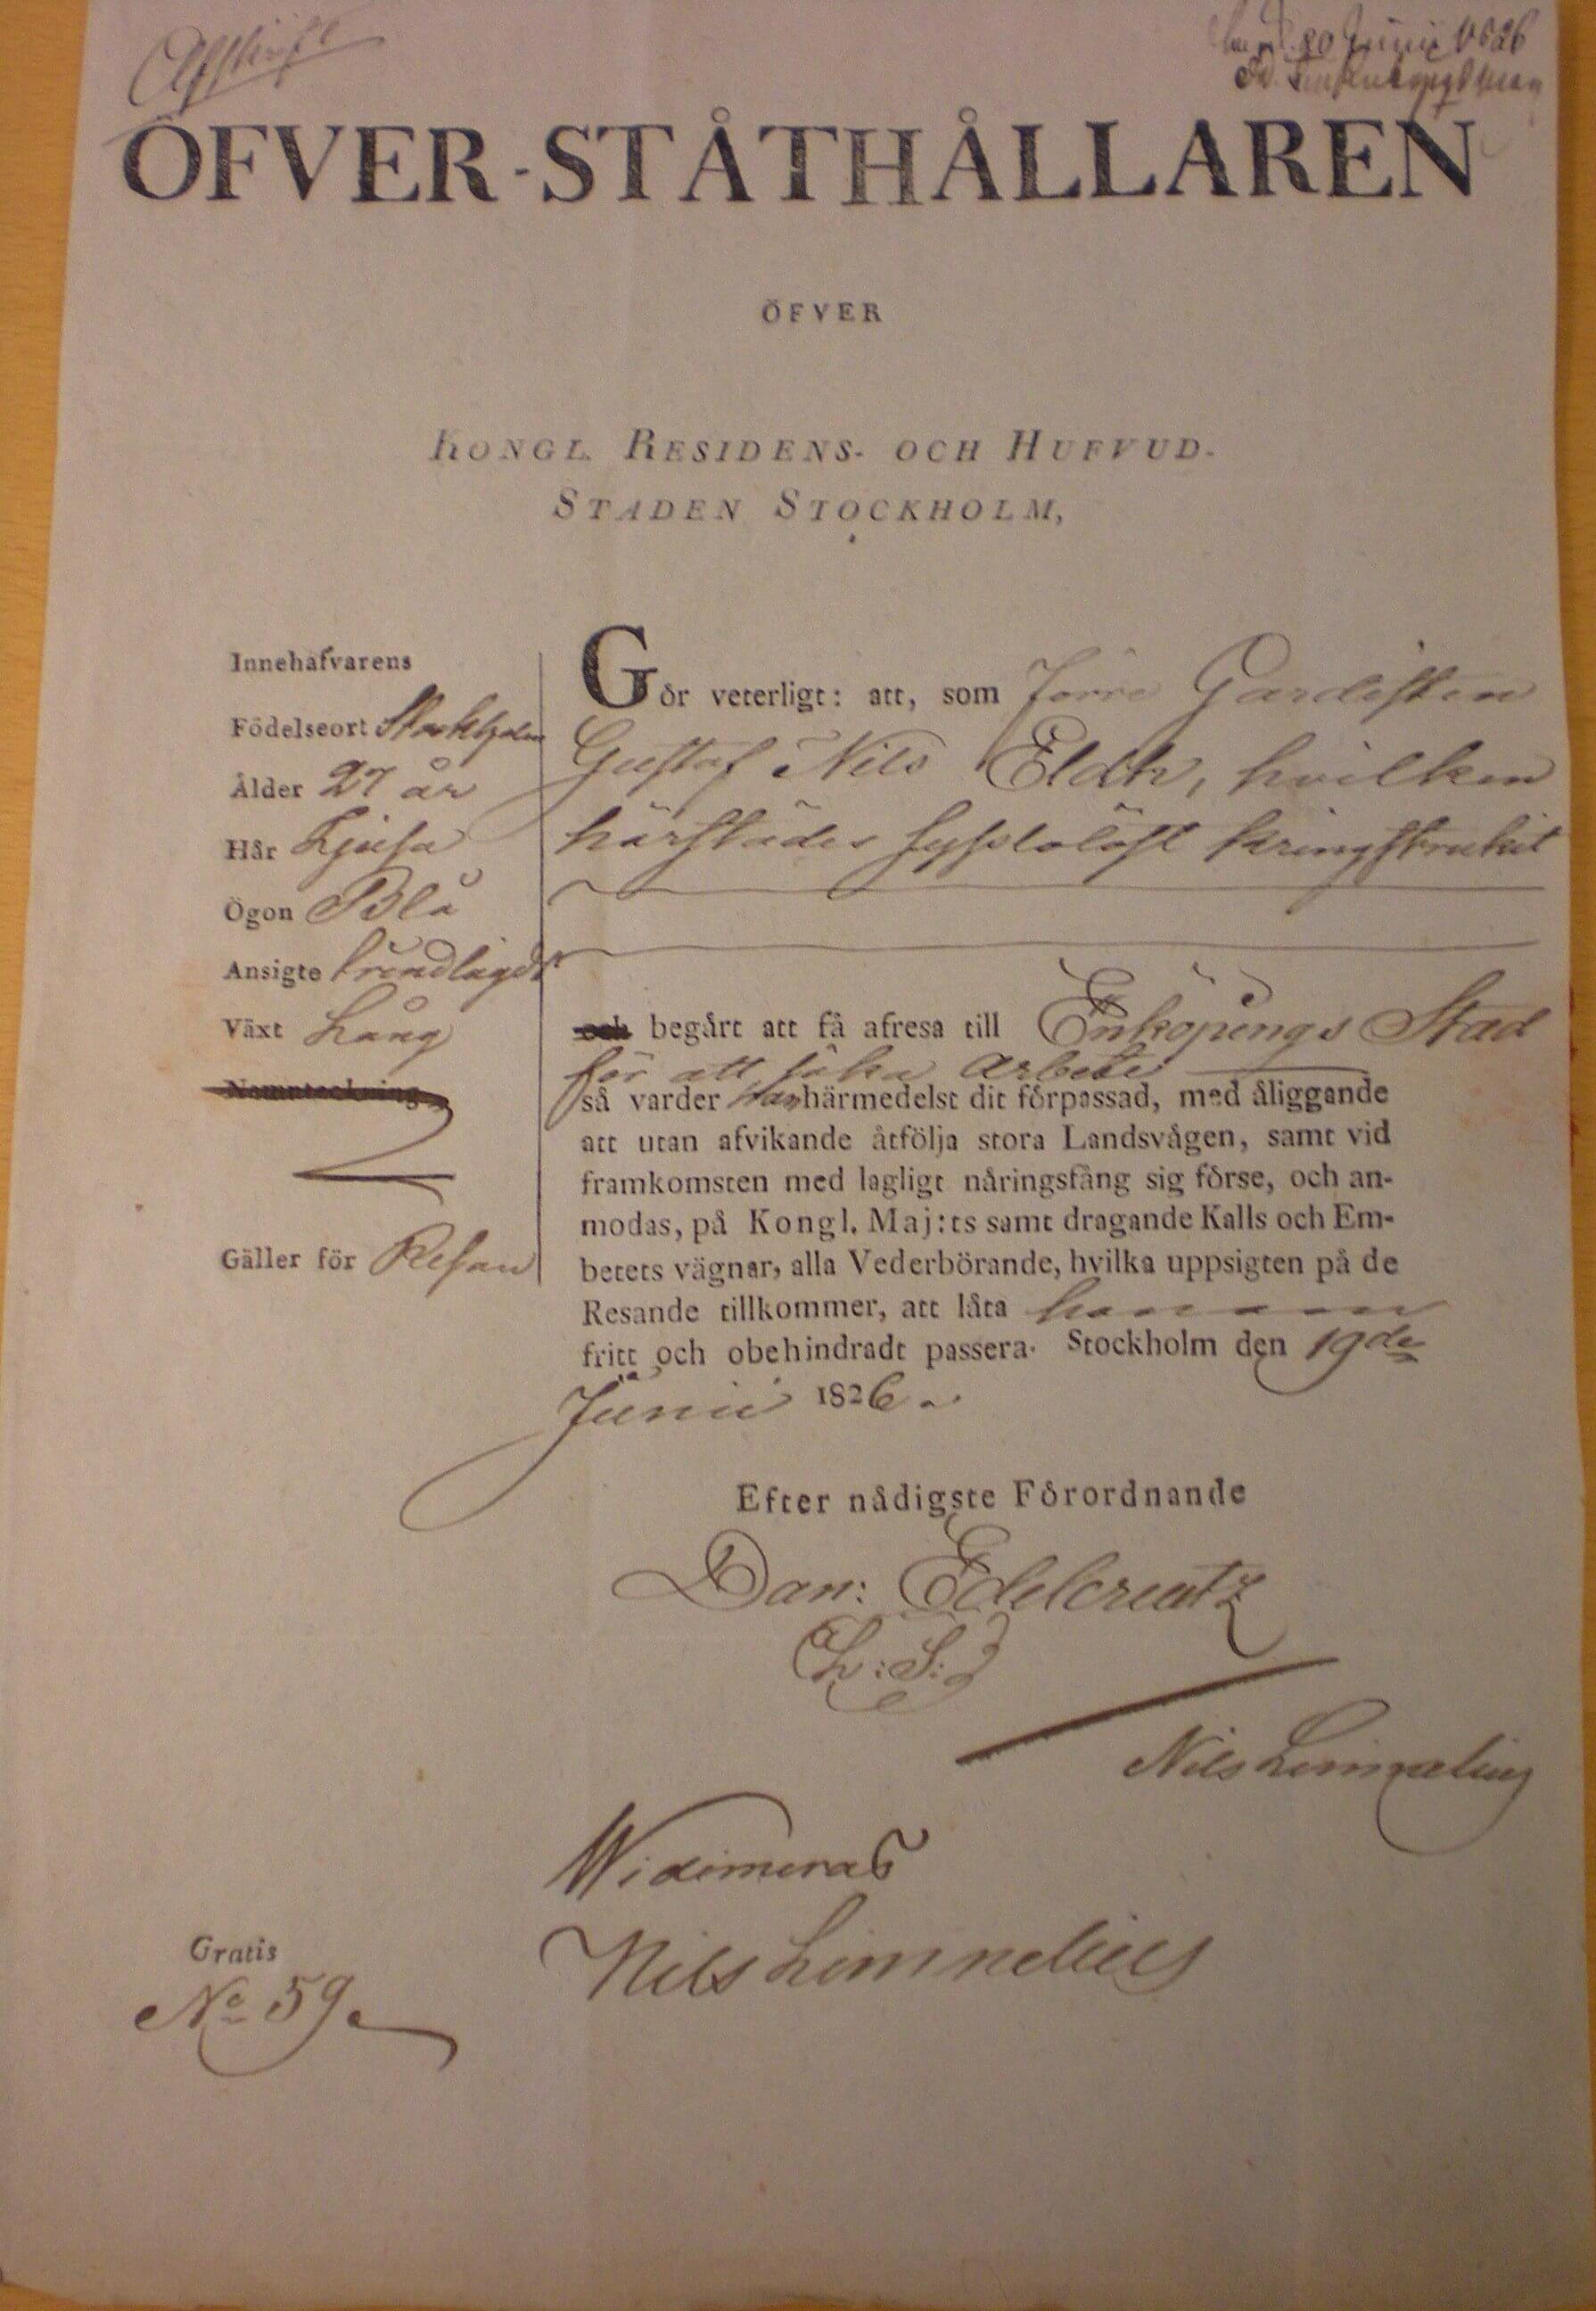 Afskrift
20 Junii 1826
ÖFVER-STÅTHÅLLAREN
ÖFVER
KONGL. RESIDENS- OCH HUFVUD-
STADEN STOCKHOLM,
Innehafvarens
Födelseort Stockholm
Ålder 27 år
Hår Ljusa
Ögon Blå
Ansigte rundlagdt
Växt Lång
Namnteckning
Gäller för Resan
Gör veterligt: att, som förre Gardisten
Gustaf Nils Eldh, hvilken
härstädes sysslolöst kringstrukit
och begårt att få afresa till Enköpings Stad
för att söka Arbete
så varder han härmedelst dit förpassad, med åliggande
att utan afvikande åtfölja stora Landsvågen, samt vid
framkomsten med lagligt nåringsfång sig förse, och an-
modas, på Kongl. Maj:ts samt dragande Kalls och Em-
betets vägnar, alla Vederbörande, hvilka uppsigten på de
Resande tillkommer, att låta honom
fritt och obehindradt passera. Stockholm den 19de
Junii 1826.
Efter nådigste Förordnande
Dan: Edelcreutz
L:S:
Nils Limnelius
Widimeras
Nils Limnelius
Gratis
No 59